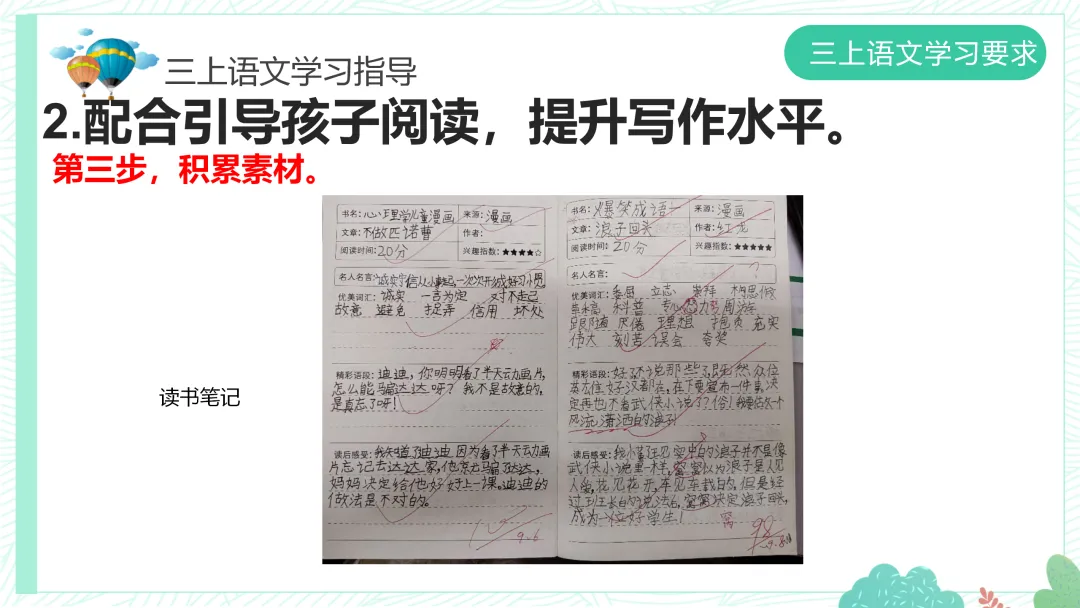 三上语文学习要求
三上语文学习指导
2.配合引导孩子阅读，提升写作水平。
第三步，积累素材。
读书笔记
书名：心理学儿童漫画 来源：漫画
文章：不做匹诺曹 作者：
阅读时间：20分 兴趣指数：★★★★☆
名人名言：诚实守信从小事起，一次次形成好习惯
优美词汇：诚实 一言为定 对不起
故意 避免 捉弄 信用 坏处
精彩语段：迪迪，你明明看了半天动画片，
怎么能骗达达呀？我不是故意的，
是真忘了呀！
读后感受：我知道了迪迪因为看了半天动画
片忘记去达达家，他怎么骗达达，
妈妈决定给他好好上一课。迪迪的
做法是不对的。
9.6
书名：爆笑成语 来源：漫画
文章：浪子回头 作者：红龙
阅读时间：20分 兴趣指数：★★★★★
名人名言：
优美词汇：委屈 立志 崇拜
科普 周游
理想 抱负 充实
伟大 刻苦 误会 夸奖
精彩语段：好不说那些了既然众位
英雄好汉都在，在下要宣布一件事，决
定再也不看武侠小说了
风流潇洒的浪子！
读后感受：
武侠小说里一样，窝窝以为浪子是人见
人爱，花见花开，车见车载的，但是经
过班长的说法后，窝窝决定浪子回头，
成为一位好学生！
窝
98